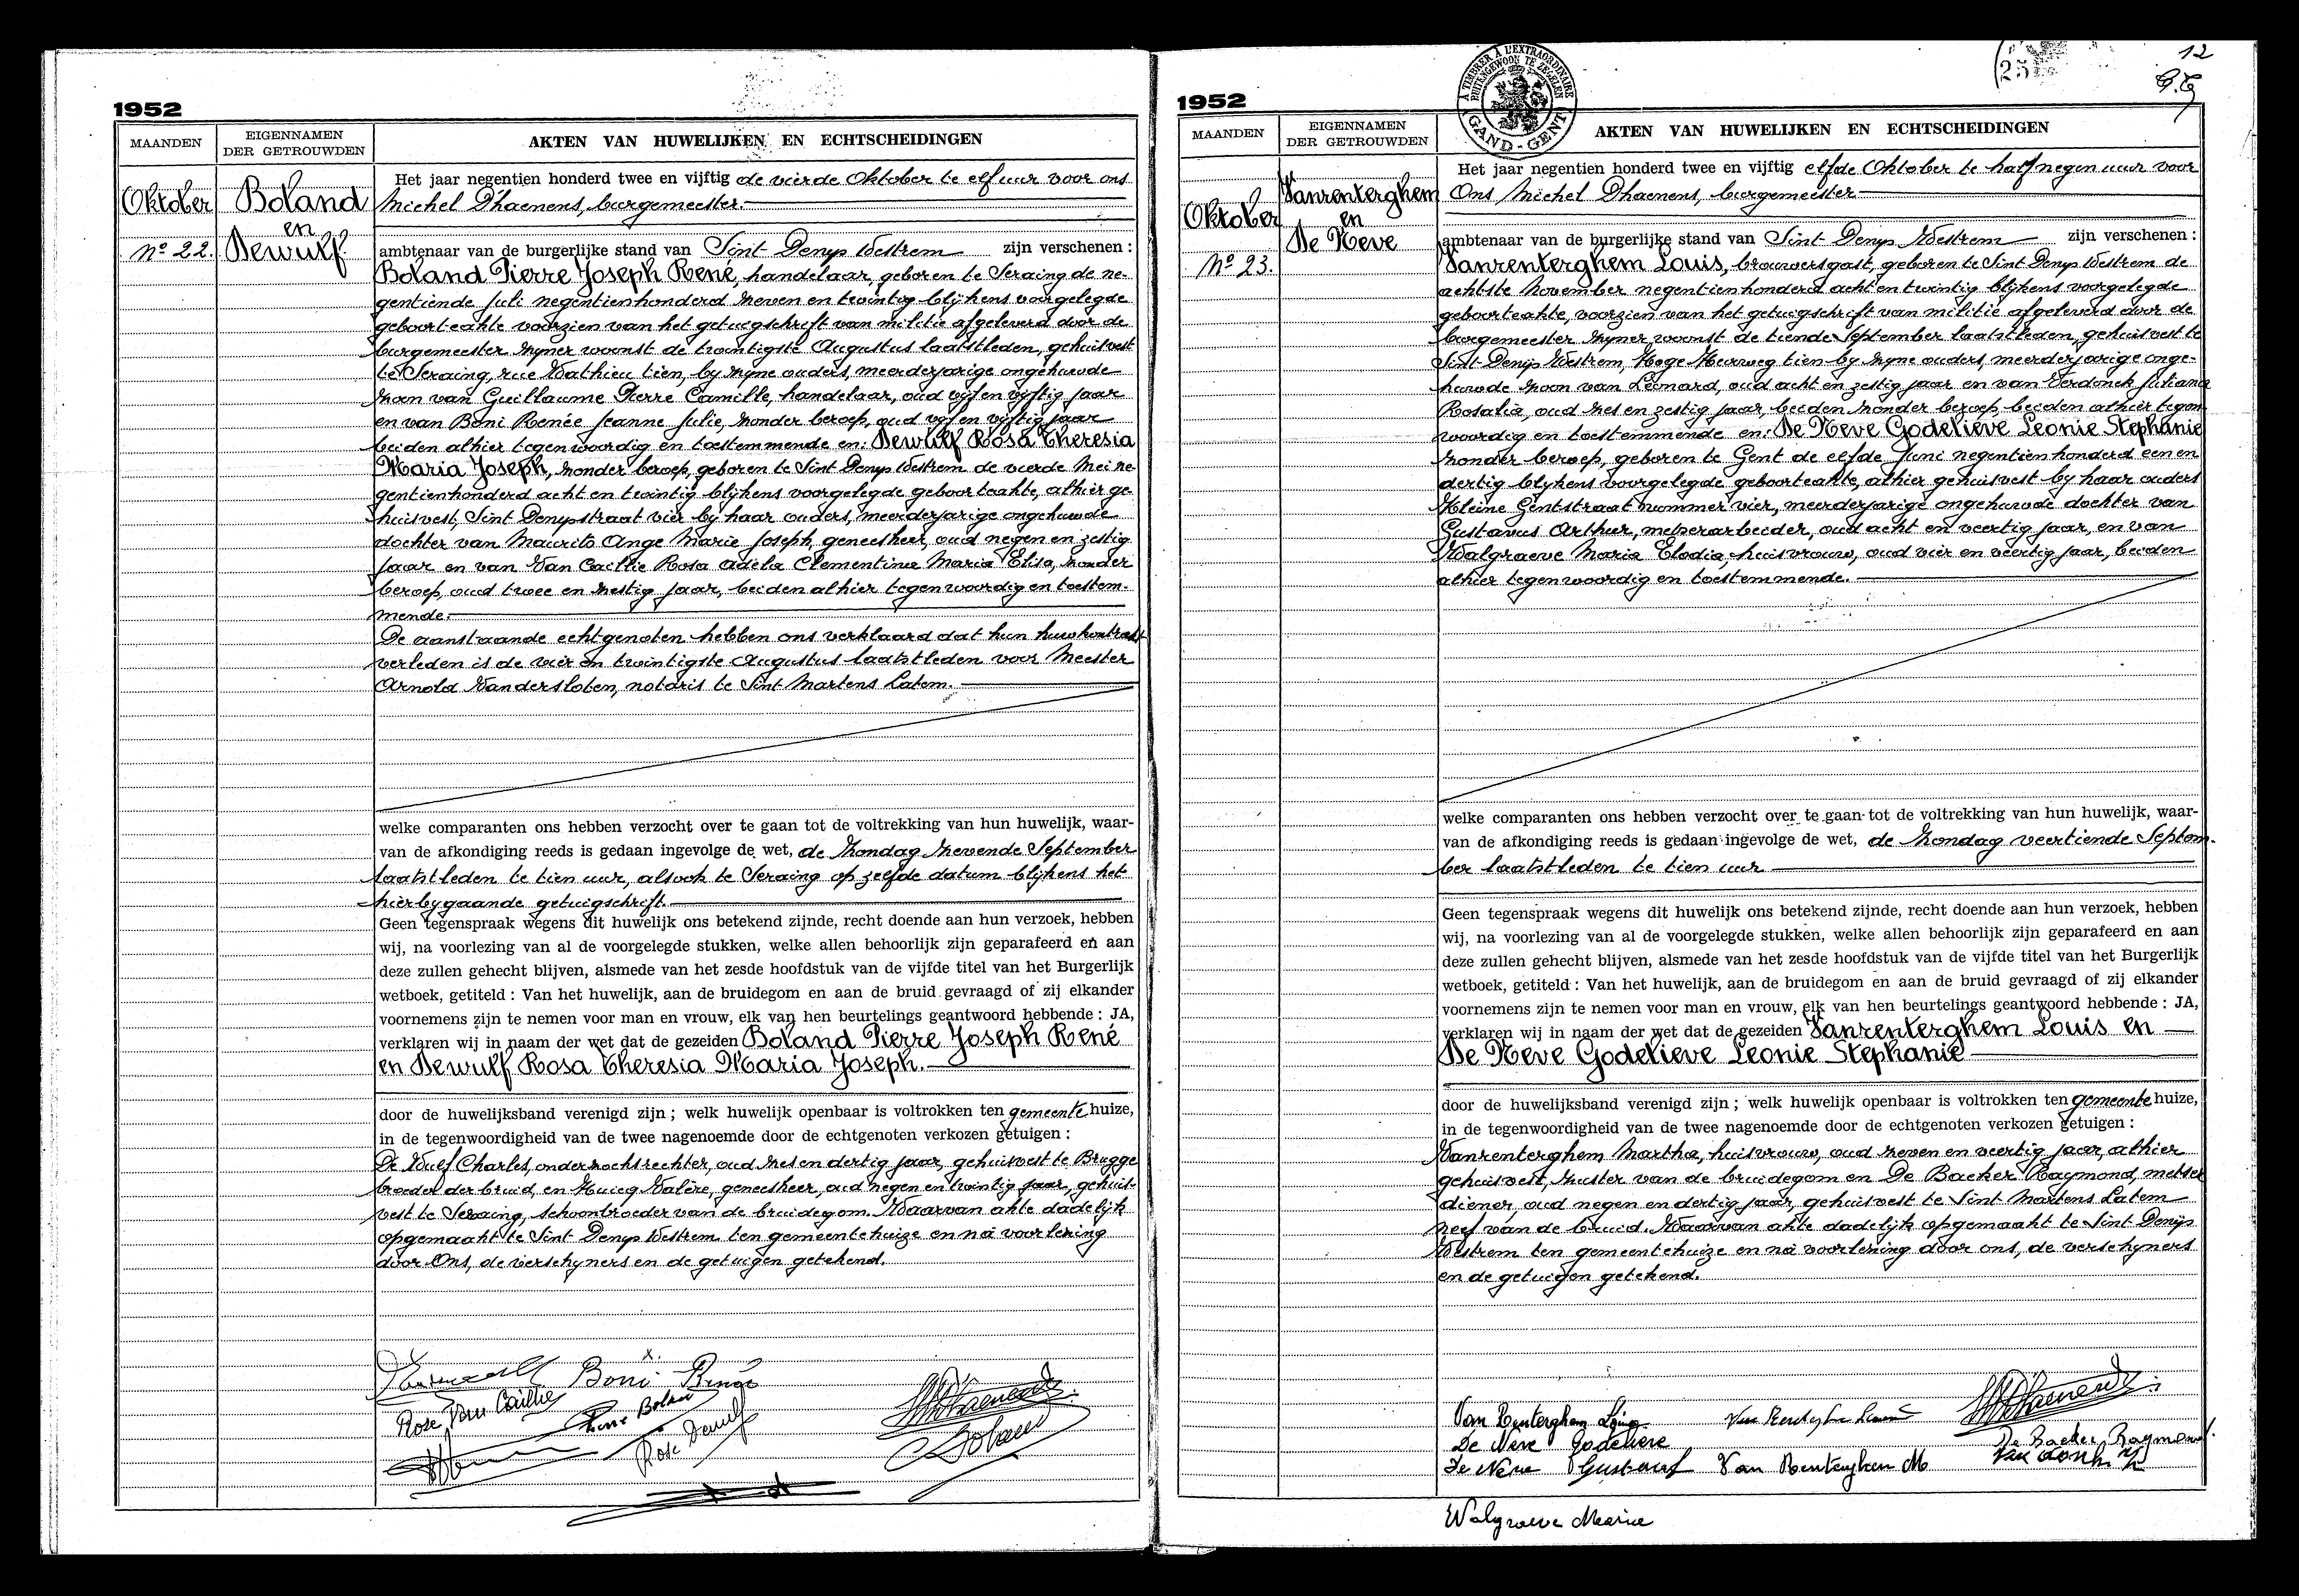 1952
MAANDEN
EIGENNAMEN
DER GETROUWDEN
AKTEN VAN HUWELIJKEN EN ECHTSCHEIDINGEN
Oktober
Nº 22.
Boland
en
Dewulf
Het jaar negentien honderd twee en vijftig de vierde Oktober te elf uur voor ons
Michel Dhaenens, burgemeester.
ambtenaar van de burgerlijke stand van Sint Denys Westrem zijn verschenen :
Boland Pierre Joseph René, handelaar, geboren te Seraing de ne-
gentiende Juli negentienhonderd zeven en twintig blijkens voorgelegde
geboorteakte voorzien van het getuigschrift van militie afgeleverd door de
burgemeester zyner woonst de twintigste Augustus laatstleden, gehuisvest
te Seraing, rue Wathieu tien, by zyne ouders, meerderjarige ongehuwde
zoon van Guillaume Pierre Camille, handelaar, oud vyf en vyftig jaar
en van Boni Renée Jeanne Julie, zonder beroep, oud vyf en vyftig jaar
beiden alhier tegenwoordig en toestemmende en: Dewulf Rosa Theresia
Maria Joseph, zonder beroep, geboren te Sint Denys Westrem de vierde Mei ne-
gentienhonderd acht en twintig blijkens voorgelegde geboorteakte, alhier ge-
huisvest, Sint Denysstraat vier by haar ouders, meerderjarige ongehuwde
dochter van Maurits Ange Marie Joseph, geneesheer, oud negen en zestig
jaar en van Van Caillie Rosa Adela Clementina Maria Elisa, zonder
beroep, oud twee en zestig jaar, beiden alhier tegenwoordig en toestem-
mende.
De aanstaande echtgenoten hebben ons verklaard dat hun huwkontrakt
verleden is de vier en twintigste Augustus laatstleden voor Meester
Arnold Vandersloten, notaris te Sint Martens Latem.
welke comparanten ons hebben verzocht over te gaan tot de voltrekking van hun huwelijk, waar-
van de afkondiging reeds is gedaan ingevolge de wet, de Zondag zevende September
laatstleden te tien uur, alsook te Seraing op zelfde datum blijkens het
hierbygaande getuigschrift.
Geen tegenspraak wegens dit huwelijk ons betekend zijnde, recht doende aan hun verzoek, hebben
wij, na voorlezing van al de voorgelegde stukken, welke allen behoorlijk zijn geparafeerd en aan
deze zullen gehecht blijven, alsmede van het zesde hoofdstuk van de vijfde titel van het Burgerlijk
wetboek, getiteld : Van het huwelijk, aan de bruidegom en aan de bruid gevraagd of zij elkander
voornemens zijn te nemen voor man en vrouw, elk van hen beurtelings geantwoord hebbende : JA,
verklaren wij in naam der wet dat de gezeiden Boland Pierre Joseph René
en Dewulf Rosa Theresia Maria Joseph.
door de huwelijksband verenigd zijn ; welk huwelijk openbaar is voltrokken ten gemeentehuize,
in de tegenwoordigheid van de twee nagenoemde door de echtgenoten verkozen getuigen :
De Wulf Charles, onderzoeksrechter, oud zes en dertig jaar, gehuisvest te Brugge
broeder der bruid, en Huicq Valère, geneesheer, oud negen en twintig jaar, gehuis-
vest te Seraing, schoonbroeder van de bruidegom. Waarvan akte dadelijk
opgemaakt te Sint Denys Westrem ten gemeentehuize en na voorlezing
door Ons, de verschyners en de getuigen getekend.
Boni Renée
Rose Van Caillie
Pierre Boland
Rose Dewulf
MDhaenens
Boland
1952
A TIMBRER A L'EXTRAORDINAIRE
BUITENGEWOON TE ZEGELEN
GAND - GENT
12
MAANDEN
EIGENNAMEN
DER GETROUWDEN
AKTEN VAN HUWELIJKEN EN ECHTSCHEIDINGEN
Oktober
Nº 23.
Vanrenterghem
en
De Neve
Het jaar negentien honderd twee en vijftig elfde Oktober te half negen uur voor
Ons Michel Dhaenens, burgemeester
ambtenaar van de burgerlijke stand van Sint Denys Westrem zijn verschenen :
Vanrenterghem Louis, brouwersgast, geboren te Sint Denys Westrem de
achtste November negentienhonderd acht en twintig blijkens voorgelegde
geboorteakte, voorzien van het getuigschrift van militie afgeleverd door de
burgemeester zyner woonst de tiende September laatstleden, gehuisvest te
Sint Denys Westrem, Hoge Heirweg tien by zyne ouders, meerderjarige onge-
huwde zoon van Leonard, oud acht en zestig jaar en van Verdonck Juliana
Rosalia, oud zes en zestig jaar, beiden zonder beroep, beiden alhier tegen-
woordig en toestemmende en: De Neve Godelieve Leonie Stephanie
zonder beroep, geboren te Gent de elfde Juni negentienhonderd een en
dertig blykens voorgelegde geboorteakte, alhier gehuisvest by haar ouders
Kleine Gentstraat nummer vier, meerderjarige ongehuwde dochter van
Gustavus Arthur, metserarbeider, oud acht en veertig jaar, en van
Walgraeve Maria Elodia, huisvrouw, oud vier en veertig jaar, beiden
alhier tegenwoordig en toestemmende.
welke comparanten ons hebben verzocht over te gaan tot de voltrekking van hun huwelijk, waar-
van de afkondiging reeds is gedaan ingevolge de wet, de Zondag veertiende Septem-
ber laatstleden te tien uur
Geen tegenspraak wegens dit huwelijk ons betekend zijnde, recht doende aan hun verzoek, hebben
wij, na voorlezing van al de voorgelegde stukken, welke allen behoorlijk zijn geparafeerd en aan
deze zullen gehecht blijven, alsmede van het zesde hoofdstuk van de vijfde titel van het Burgerlijk
wetboek, getiteld : Van het huwelijk, aan de bruidegom en aan de bruid gevraagd of zij elkander
voornemens zijn te nemen voor man en vrouw, elk van hen beurtelings geantwoord hebbende : JA,
verklaren wij in naam der wet dat de gezeiden Vanrenterghem Louis en
De Neve Godelieve Leonie Stephanie
door de huwelijksband verenigd zijn ; welk huwelijk openbaar is voltrokken ten gemeentehuize,
in de tegenwoordigheid van de twee nagenoemde door de echtgenoten verkozen getuigen :
Vanrenterghem Martha, huisvrouw, oud zeven en veertig jaar, alhier
gehuisvest, zuster van de bruidegom en De Backer Raymond, metser
diener, oud negen en dertig jaar, gehuisvest te Sint Martens Latem
neef van de bruid. Waarvan akte dadelijk opgemaakt te Sint Denijs
Westrem ten gemeentehuize en na voorlezing door ons, de verschyners
en de getuigen getekend.
MDhaenens
De Neve Godelieve
De Backer Raymond
De Neve Gustaaf
Van Renterghem M
Walgraeve Maria